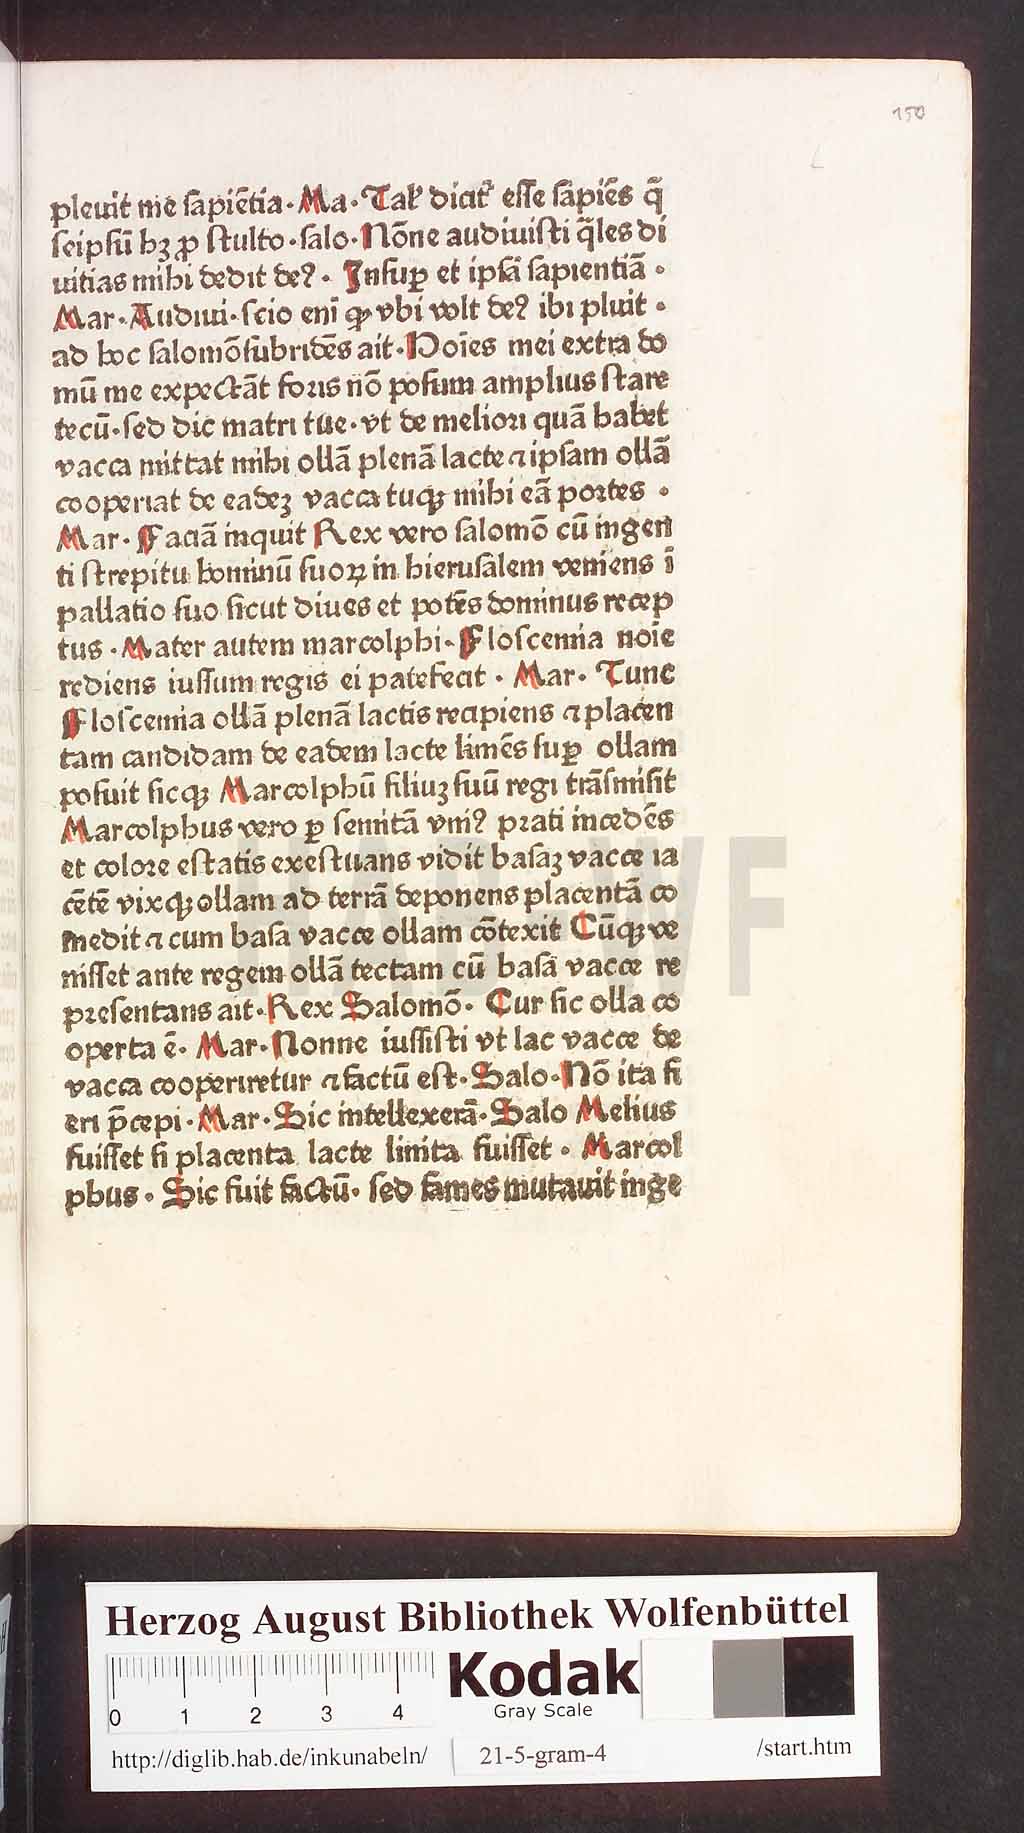 150
pleuit me sapiētia·Ma·Tal' dicit᷑ esse sapiēs q̄
seipsū hꝫ ꝓ stulto·salo·Nōne audiuisti q̄les di
uitias mihi dedit deꝰ· Insuꝑ et ipsā sapientiā·
Mar·Audiui·scio eni ꝙ vbi volt deꝰ ibi pluit·
ad hoc salomō subridēs ait·Hoīes mei extra do
mū me expectāt foris nō possum amplius stare
tecū·sed dic matri tue·vt de meliori quā habet
vacca mittat mihi ollā plenā lacte ⁊ ipsam ollā
cooperiat de eadeꝫ vacca tuqꝫ mihi eā portes·
Mar·Faciā inquit Rex vero salomō cū ingen
ti strepitu hominū suoꝝ in hierusalem veniens ī
pallatio suo sicut diues et potēs dominus recep
tus·Mater autem marcolphi·Floscemia noīe
rediens iussum regis ei patefecit·Mar·Tunc
Floscemia ollā plenā lactis recipiens ⁊ placen
tam candidam de eadem lacte limēs suꝑ ollam
posuit sicqꝫ Marcolphū filiuꝫ suū regi trāsmisit
Marcolphus vero ꝑ semitā vniꝰ prati incedēs
et colore estatis exestuans vidit basaꝫ vacce ia
cētē vixqꝫ ollam ad terrā deponens placentā co
medit ⁊ cum basa vacce ollam cōtexit Cūqꝫ ve
nisset ante regem ollā tectam cū basā vacce re
presentans ait·Rex Salomō·Cur sic olla co
operta ē·Mar·Nonne iussisti vt lac vacce de
vacca cooperiretur ⁊ factū est·Salo·Nō ita fi
eri p̄cepi·Mar·Sic intellexerā·Salo Melius
fuisset si placenta lacte linita fuisset·Marcol
phus·Sic fuit factū·sed fames mutauit inge
HAB WF
Herzog August Bibliothek Wolfenbüttel
Kodak
Gray Scale
0 1 2 3 4
http://diglib.hab.de/inkunabeln/ 21-5-gram-4 /start.htm